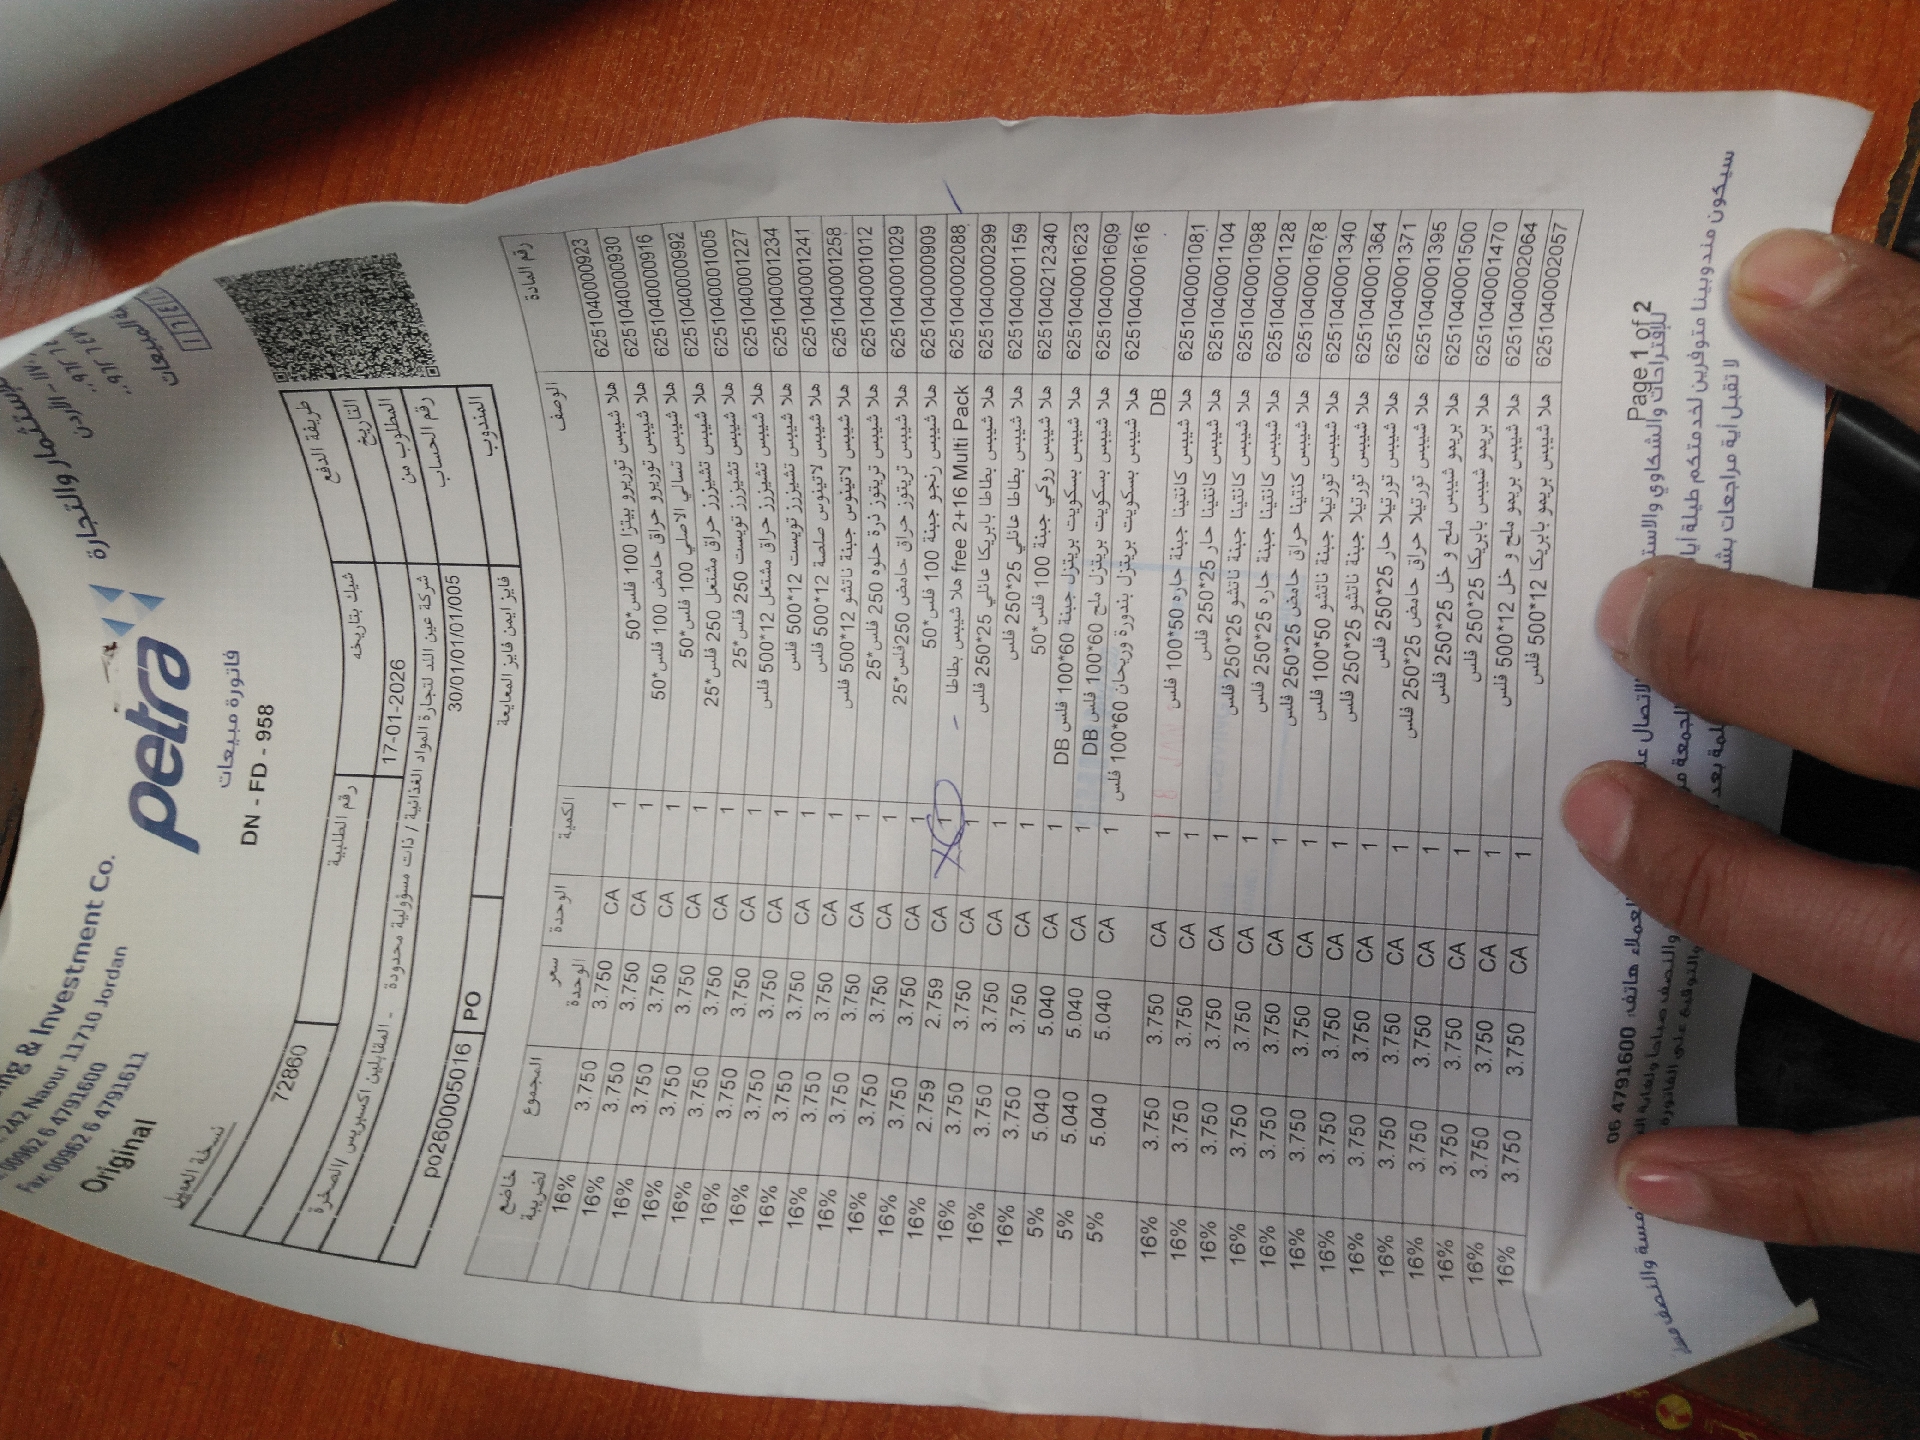 ing & Investment Co.
242 Naour 11710 Jordan
00962 6 4791600
Fax: 00962 6 4791611
Original
نسخة العميل
petra
ستثمار والتجارة
الأردن
المبيعات
فاتورة مبيعات
DN - FD - 958
طريقة الدفع شيك بتاريخه رقم الطلبية 72860
التاريخ 17-01-2026
المطلوب من شركة عين اللد لتجارة المواد الغذائية / ذات مسؤولية محدودة - المقابلين اكسبريس /الصخرة
رقم الحساب 30/01/01/01/005 PO po260005016
المندوب فايز ايمن فايز المعايعة
رقم المادة الوصف الكمية الوحدة سعر الوحدة المجموع خاضع لضريبة
6251040000923 هلا شيبس توريرو بيتزا 100 فلس*50 1 CA 3.750 3.750 16%
6251040000930 هلا شيبس توريرو حراق حامض 100 فلس*50 1 CA 3.750 3.750 16%
6251040000916 هلا شيبس تسالي الاصلي 100 فلس*50 1 CA 3.750 3.750 16%
6251040000992 هلا شيبس تشيززز حراق مشتعل 250 فلس*25 1 CA 3.750 3.750 16%
6251040001005 هلا شيبس تشيززز تويست 250 فلس*25 1 CA 3.750 3.750 16%
6251040001227 هلا شيبس تشيززز حراق مشتعل 12*500 فلس 1 CA 3.750 3.750 16%
6251040001234 هلا شيبس تشيززز تويست 12*500 فلس 1 CA 3.750 3.750 16%
6251040001241 هلا شيبس لاتينوس صلصة 12*500 فلس 1 CA 3.750 3.750 16%
6251040001258 هلا شيبس لاتينوس جبنة ناتشو 12*500 فلس 1 CA 3.750 3.750 16%
6251040001012 هلا شيبس تريتوز ذرة حلوه 250 فلس*25 1 CA 3.750 3.750 16%
6251040001029 هلا شيبس تريتوز حراق حامض 250فلس*25 1 CA 3.750 3.750 16%
6251040000909 هلا شيبس رنجو جبنة 100 فلس*50 1 CA 3.750 3.750 16%
6251040002088 هلا شيبس بطاطا free 2+16 Multi Pack 1 CA 2.759 2.759 16%
6251040000299 هلا شيبس بطاطا بابريكا عائلي 25*250 فلس 1 CA 3.750 3.750 16%
6251040001159 هلا شيبس بطاطا عائلي 25*250 فلس 1 CA 3.750 3.750 16%
6251040212340 هلا شيبس روكي جبنة 100 فلس*50 1 CA 3.750 3.750 16%
6251040001623 هلا شيبس بسكويت بريتزل جبنة 60*100 فلس DB 1 CA 5.040 5.040 5%
6251040001609 هلا شيبس بسكويت بريتزل ملح 60*100 فلس DB 1 CA 5.040 5.040 5%
6251040001616 هلا شيبس بسكويت بريتزل بندورة وريحان 60*100 فلس DB 1 CA 5.040 5.040 5%
6251040001081 هلا شيبس كانتينا جبنة حاره 50*100 فلس 1 CA 3.750 3.750 16%
6251040001104 هلا شيبس كانتينا حار 25*250 فلس 1 CA 3.750 3.750 16%
6251040001098 هلا شيبس كانتينا جبنة ناتشو 25*250 فلس 1 CA 3.750 3.750 16%
6251040001128 هلا شيبس كانتينا جبنة حاره 25*250 فلس 1 CA 3.750 3.750 16%
6251040001678 هلا شيبس كنتينا حراق حامض 25*250 فلس 1 CA 3.750 3.750 16%
6251040001340 هلا شيبس تورتيلا جبنة ناتشو 50*100 فلس 1 CA 3.750 3.750 16%
6251040001364 هلا شيبس تورتيلا جبنة ناتشو 25*250 فلس 1 CA 3.750 3.750 16%
6251040001371 هلا شيبس تورتيلا حار 25*250 فلس 1 CA 3.750 3.750 16%
6251040001395 هلا شيبس تورتيلا حراق حامض 25*250 فلس 1 CA 3.750 3.750 16%
6251040001500 هلا بريمو شيبس ملح و خل 25*250 فلس 1 CA 3.750 3.750 16%
6251040001470 هلا بريمو شيبس بابريكا 25*250 فلس 1 CA 3.750 3.750 16%
6251040002064 هلا شيبس بريمو ملح و خل 12*500 فلس 1 CA 3.750 3.750 16%
6251040002057 هلا شيبس بريمو بابريكا 12*500 فلس 1 CA 3.750 3.750 16%
Page 1 of 2
للإقتراحات والشكاوي والاستف الاتصال على العملاء هاتف: 06 4791600
سيكون مندوبينا متوفرين لخدمتكم طيلة أيا الجمعة من والنصف صباحا ولغاية
لا تقبل أية مراجعات بش بعد والتوقيع على الفاتورة